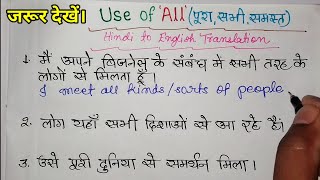 जरूर देखें।
Use of 'All' (पूरा, सभी, समस्त)
Hindi to English Translation
1. मैं अपने बिजनेस के संबंध में सभी तरह के
लोगों से मिलता हूँ।
I meet all kinds/sorts of people
2. लोग यहाँ सभी दिशाओं से आ रहे हैं।
3. उसे पूरी दुनिया से समर्थन मिला।